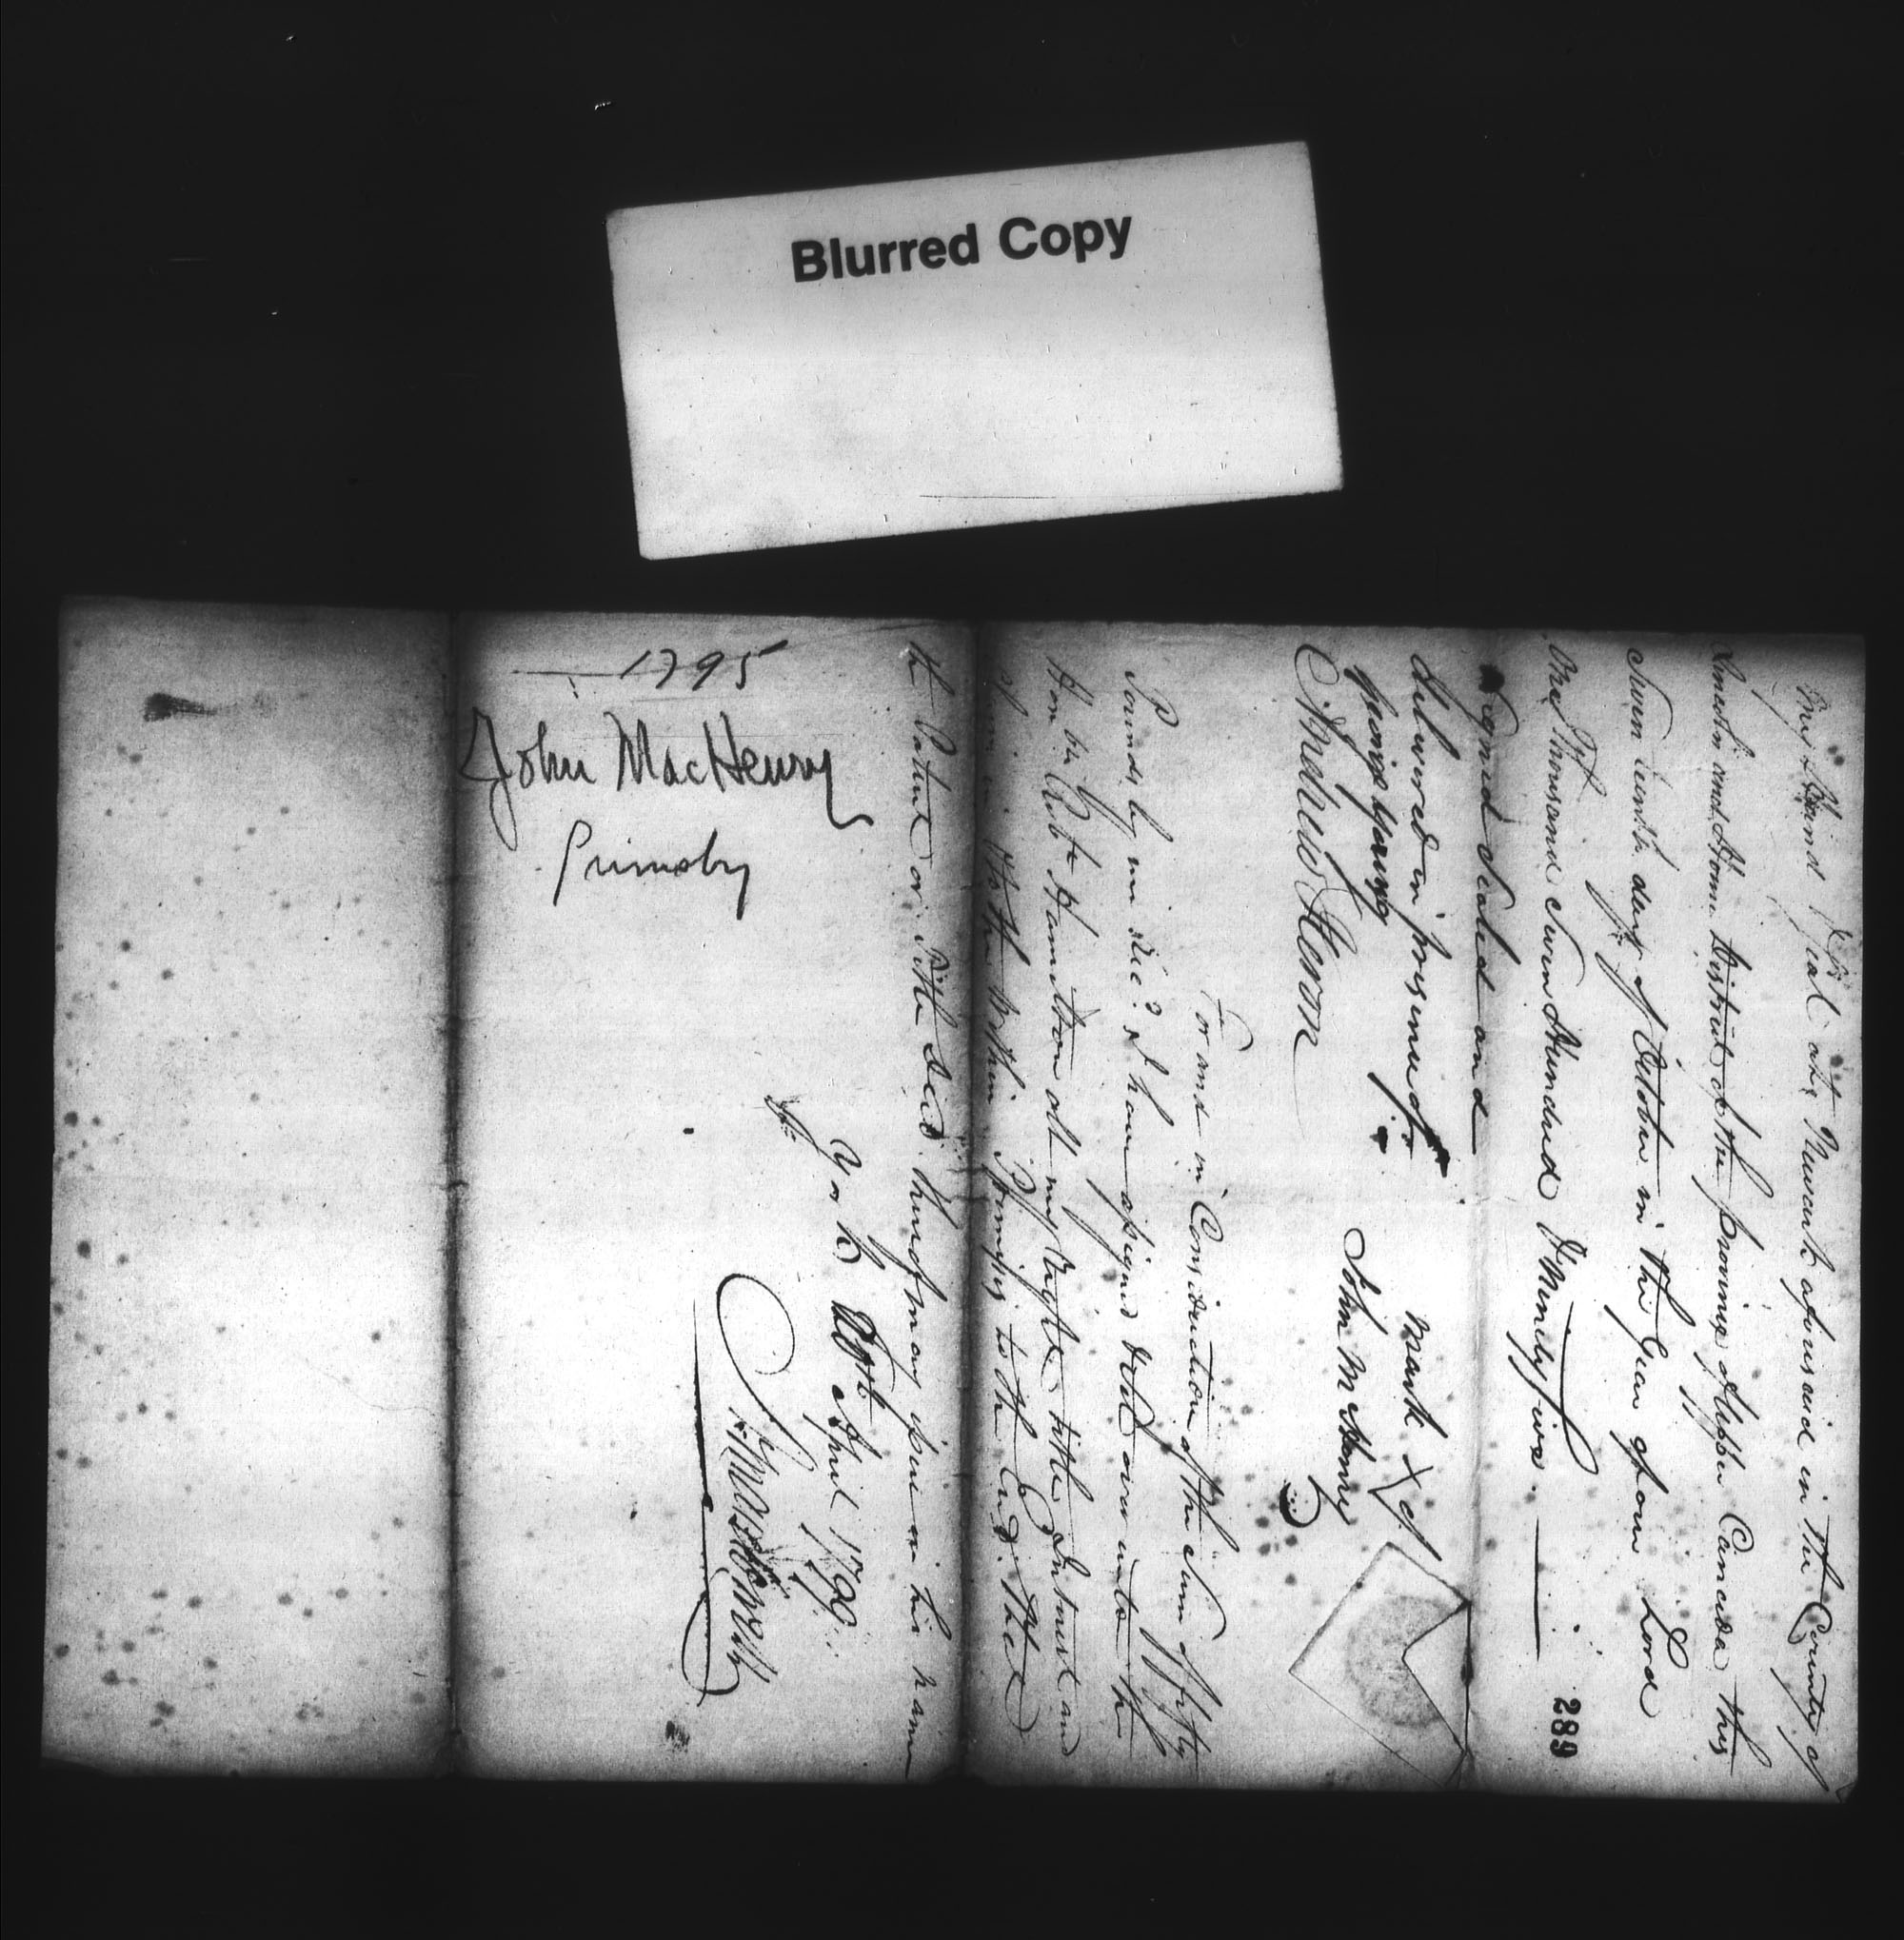 Blurred Copy
my Hand & Seal at Newark aforesaid in the County of
Lincoln and Home District of the province of Upper Canada this
Seven teenth day of October in the Year of our Lord
One Thousand Seven Hundred & Ninety five
289
Signed Sealed and
delivered in presence of
mark X of
George Young
John McHenry
Andrew Heron
For and in Consideration of the Sum of fifty
Pounds by me Rec.d I have assigned over unto the
Hon ble Rob.t Hamilton all my Right title Interest and
of in to the within Premises to the End that
the Patent or Title Deed thereof may issue in his name
York April 1799
1795
John MacHenry
Grimsby